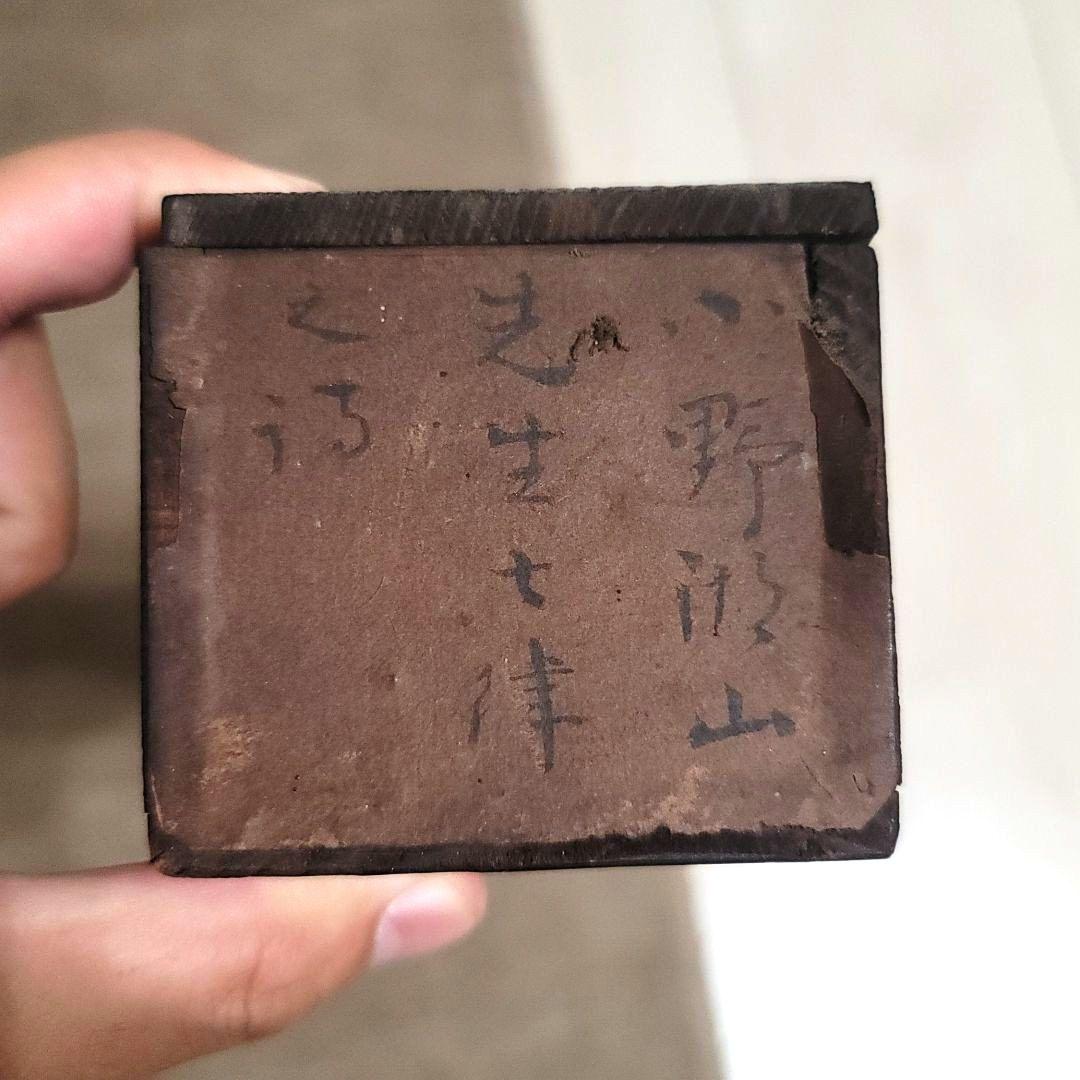 小野湖山
先生七律
之詩